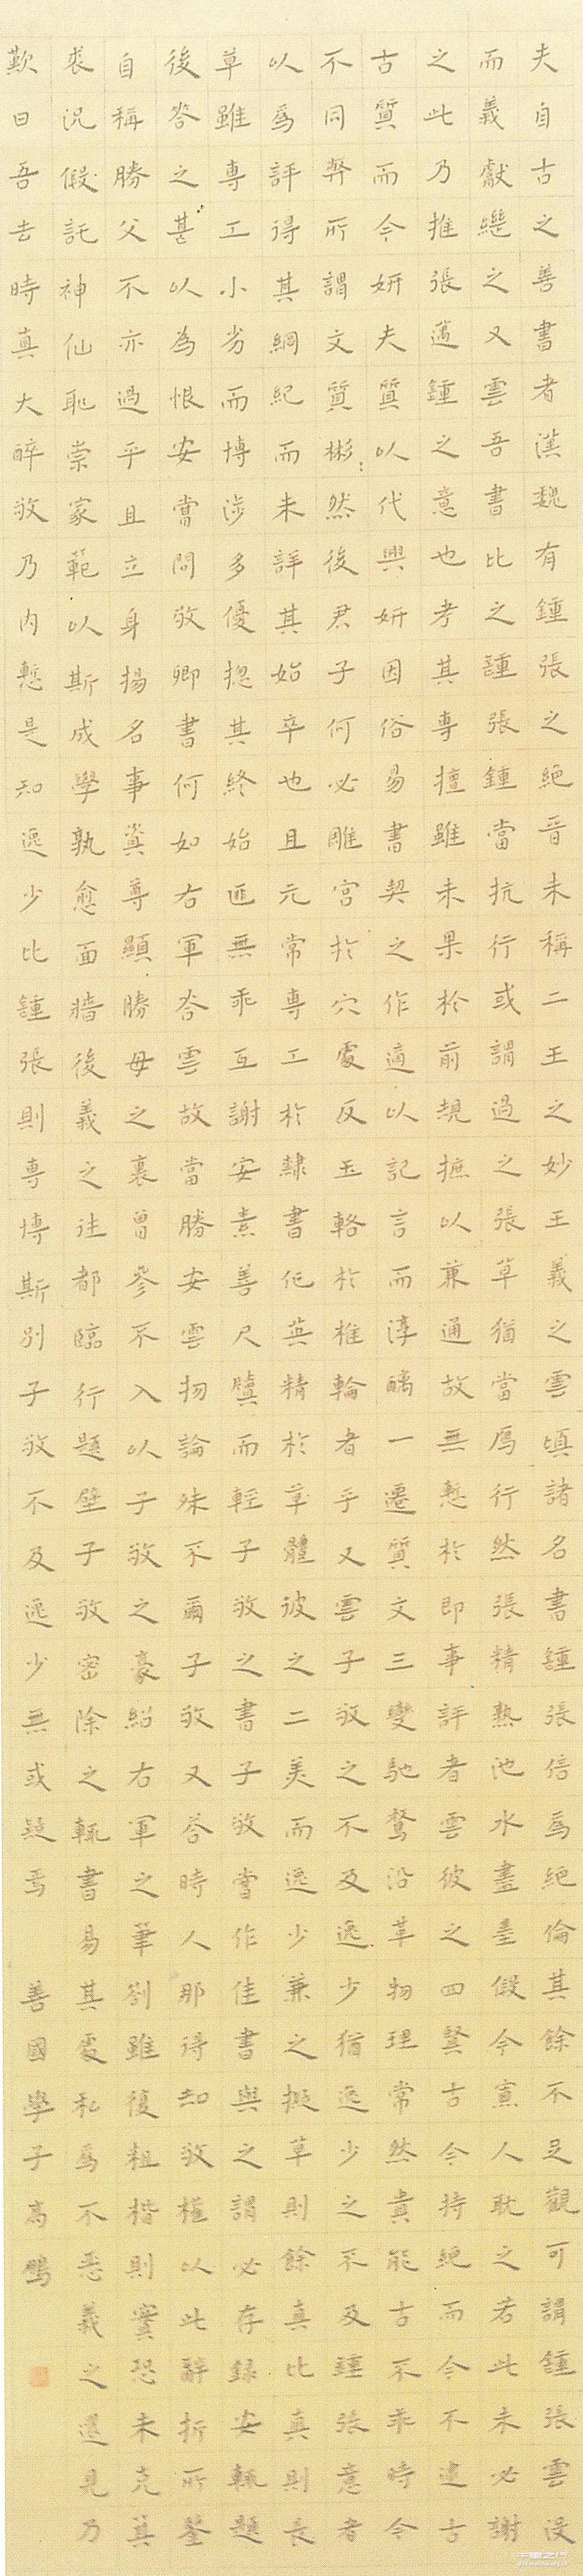 夫自古之善書者漢魏有鍾張之絕晉末稱二王之妙王羲之雲頃諸名書鍾張信爲絕倫其餘不足觀可謂鍾張雲沒
而羲獻繼之又雲吾書比之鍾張鍾當抗行或謂過之張草猶當鴈行然張精熟池水盡墨假令寡人耽之若此未必謝
之此乃推張邁鍾之意也考其專擅雖未果於前規摭以兼通故無慙於即事評者雲彼之四賢古今特絕而今不逮古
古質而今妍夫質以代興妍因俗易書契之作適以記言而淳醨一遷質文三變馳騖沿革物理常然貴能古不乖時今
不同弊所謂文質彬彬然後君子何必雕宮於穴處反玉輅於椎輪者乎又雲子敬之不及逸少猶逸少之不及鍾張意者
以爲評得其綱紀而未詳其始卒也且元常專工於隸書伯英精於草體彼之二美而逸少兼之擬草則餘真比真則長
草雖專工小劣而博涉多優揔其終始匪無乖互謝安素善尺牘而輕子敬之書子敬嘗作佳書與之謂必存錄安輒題
後答之甚以為恨安嘗問敬卿書何如右軍答雲故當勝安雲物論殊不爾子敬又答時人那得知敬權以此辭折所鑒
自稱勝父不亦過乎且立身揚名事資尊顯勝母之裏曾參不入以子敬之豪紹右軍之筆劄雖復粗楷則實恐未克箕
裘況假託神仙恥崇家範以斯成學孰愈面牆後羲之往都臨行題壁子敬密除之輒書易其處私爲不惡羲之還見乃
歎曰吾去時真大醉敬乃內慙是知逸少比鍾張則專博斯別子敬不及逸少無或疑焉 善國學子高鵬